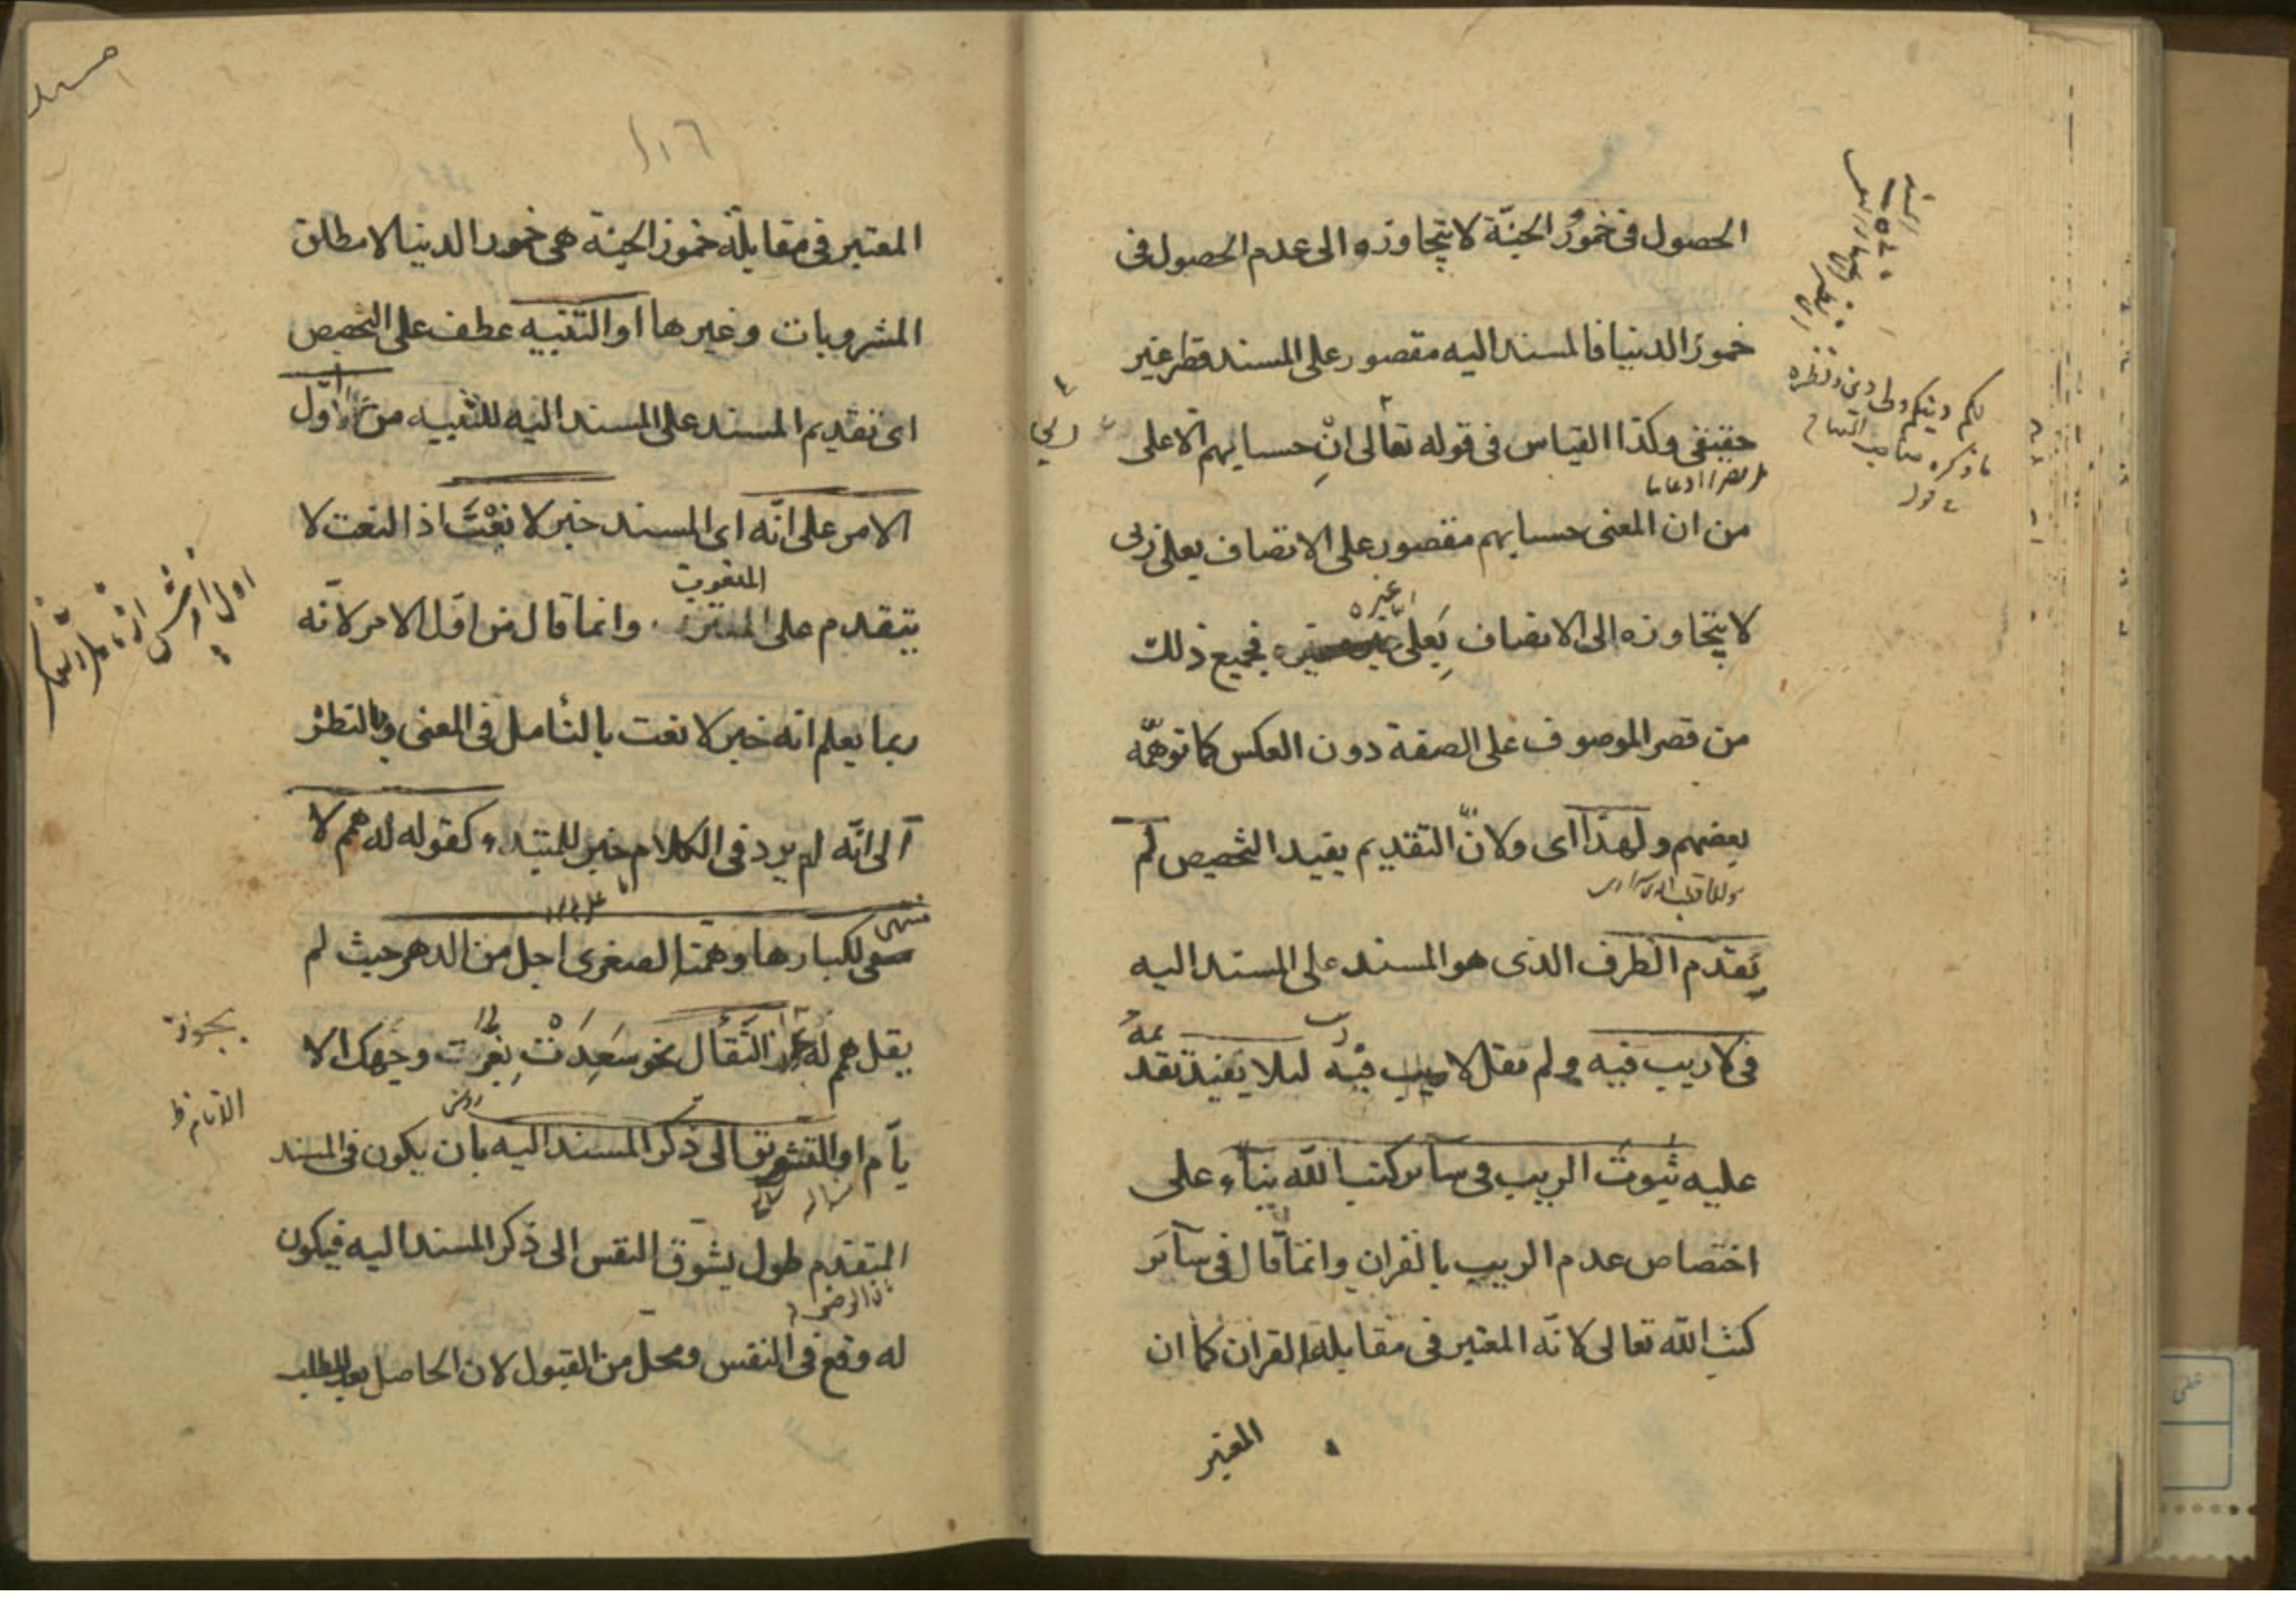 الحصول فى خمور الجنّة لا يتجاوزه الى عدم الحصول فى
خمور الدنيا فالمسند اليه مقصور على المسند قصر غير
حقيقى وكذا القياس فى قوله تعالى ان حسابهم الا على
ربي
من ان المعنى حسابهم مقصور على الاتصاف بعلى ربى
لا يتجاوزه الى الاتصاف بعلى غيره فجميع ذلك
من قصر الموصوف على الصفة دون العكس كما توهمّه
بعضهم ولهذا اى ولانّ التقديم يفيد التخصيص لم
يقدم الظرف الذى هو المسند على المسند اليه
فى لا ريب فيه ولم يقل لا فيه ريب ليلا يفيد تقديمه
عليه ثبوت الريب فى سآئر كتب الله بنآء على
اختصاص عدم الريب بالقران وانمّا قال فى سآئر
كتب الله تعالى لانّه المعتبر فى مقابلة القران كما ان
المعتبر
لكم دينكم ولى دين ونظيره
ما ذكره صاحب المفتاح
١١٦
المعتبر فى مقابلة خمور الجنة هى خمور الدنيا لا مطلق
المشروبات وغيرها او التنبيه عطف على التخصيص
اى تقديم المسند على المسند اليه للتنبيه من اوّل
الامر على انّه اى المسند خبر لا نعت اذ النعت لا
يتقدم على المنعوت وانما قال من اول الامر لانّه
ربما يعلم انه خبر لا نعت بالتأمل فى المعنى وبالنظر
الى انّه لم يرد فى الكلام خبر للمبتدء كقوله له همم لا
منتهى لكبارها وهمته الصغرى اجل من الدهر حيث لم
يقل همم له او التفأل نحو سَعِدَتْ بِغُرّت وجهك الا
يآم او التشويق الى ذكر المسند اليه بان يكون فى المسند
المتقدم طول يشوّق النفس الى ذكر المسند اليه فيكون
له وقع فى النفس ومحل من القبول لان الحاصل بعد الطلب